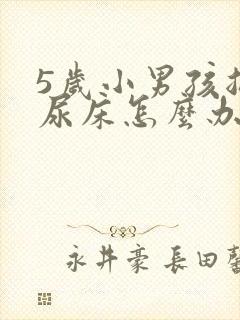 5歲小男孩
尿床怎麼办
永井豪 長田